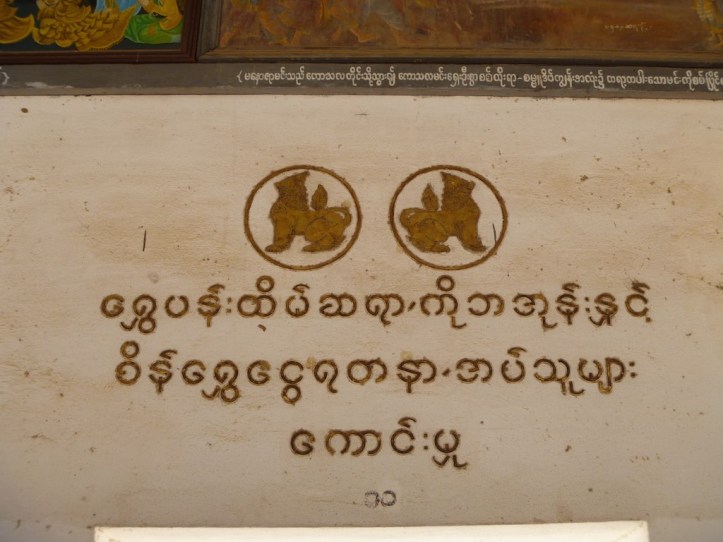 { မဟောဇာမင်းသည် ကောသလ တိုင်းသို့သွား၍ ကောသလမင်းရှေးဦးစွာ စစ်ထိုးရာ - စမ္ဗူဒိပ်ကျွန်းအလုံး၌
ရွှေပန်းထိမ်ဆရာ,ကိုဘအုန်းနှင့်
စိန်ရွှေငွေရတနာ,အပ်သူများ
ကောင်းမှု
၃၁